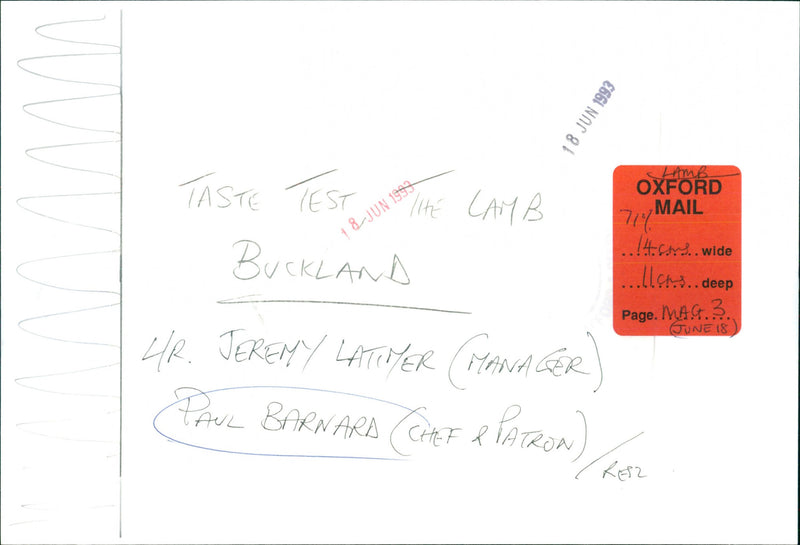 18 JUN 1993
TASTE TEST THE LAMB
18 JUN 1993
BUCKLAND
L/R. JEREMY LATIMER (MANAGER)
PAUL BARNARD (CHEF & PATRON)
LAMB
OXFORD
MAIL
71%
14 cms wide
11 cms deep
Page. MAG. 3
(JUNE 18)